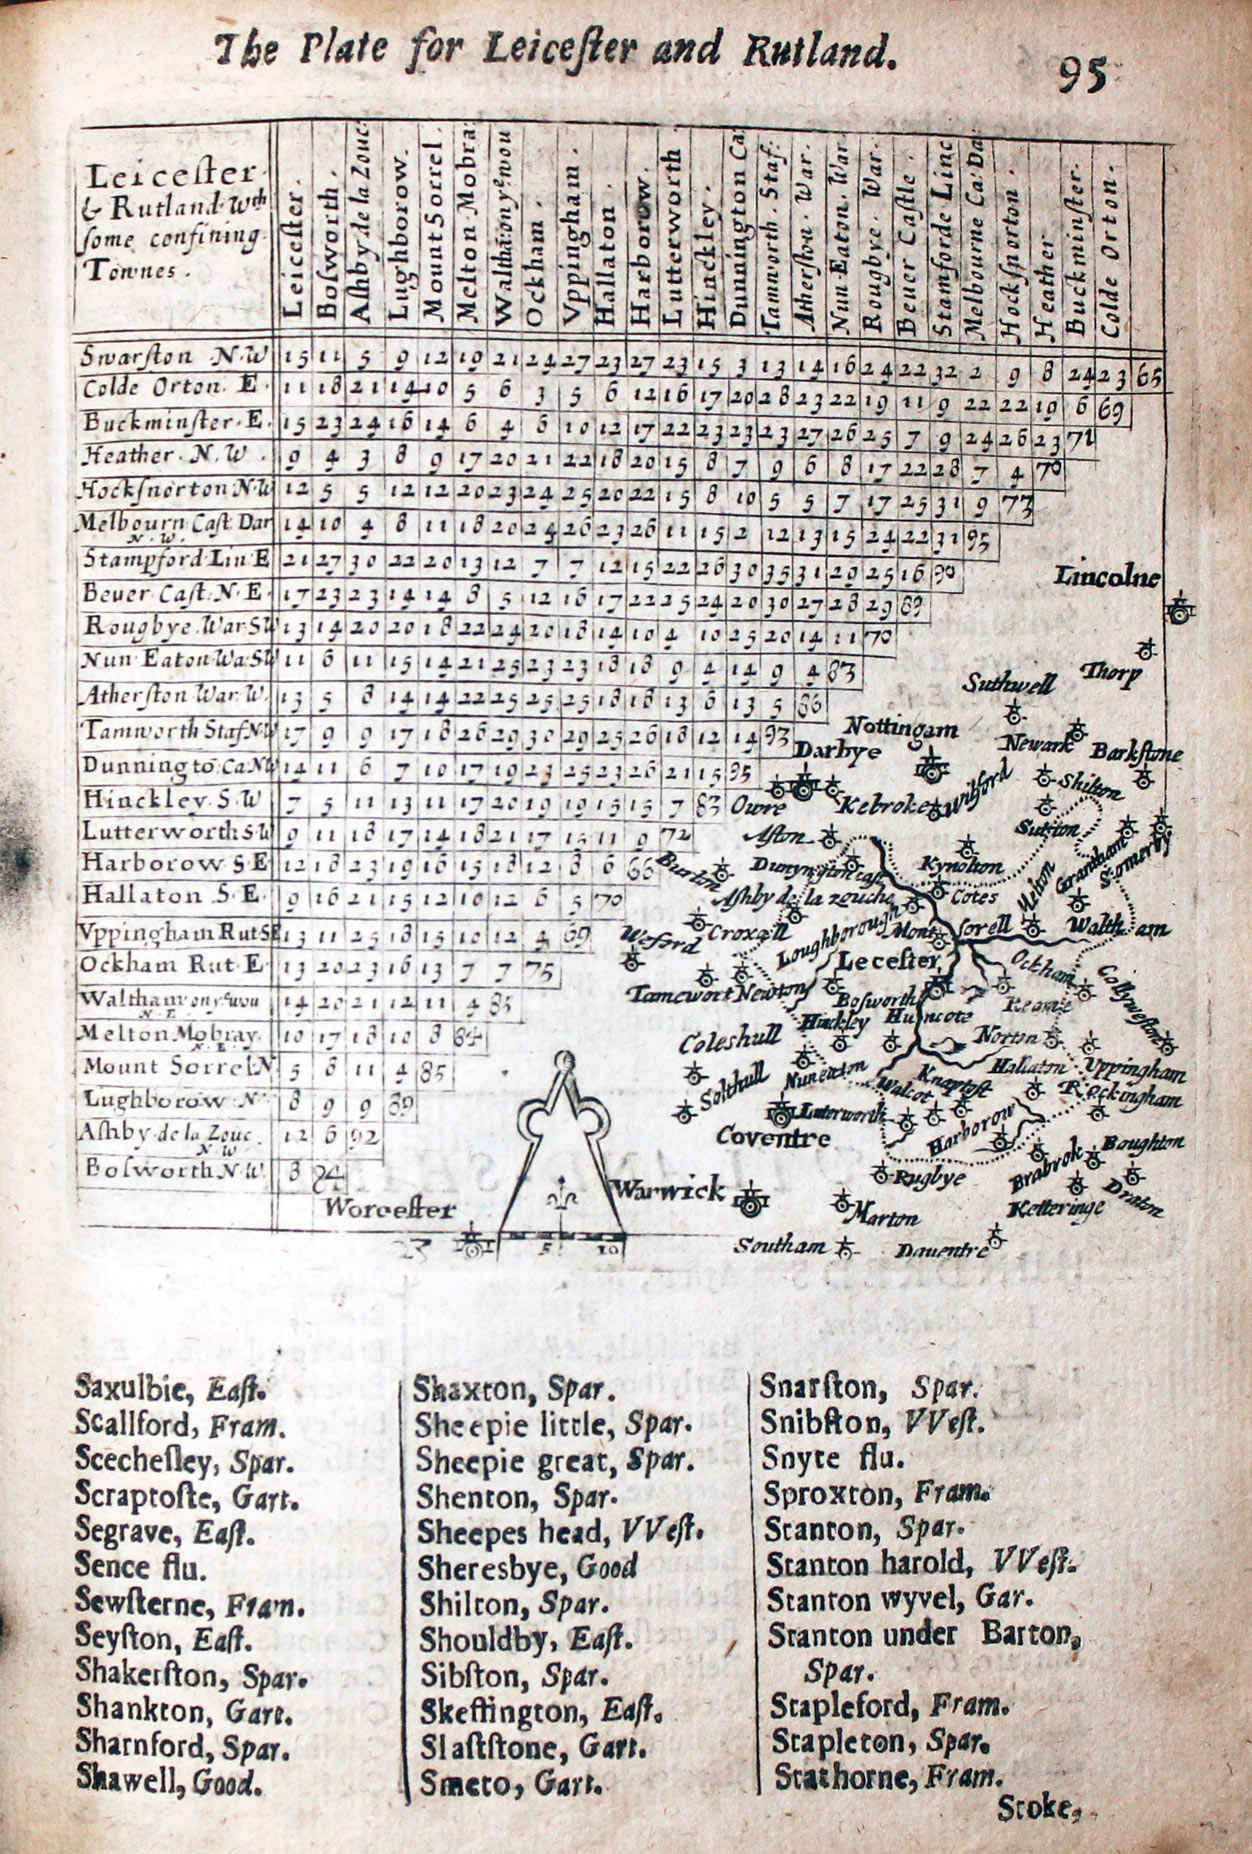 The Plate for Leiceſter and Rutland.
95
Leiceſter
& Rutland Wth
ſome confining
Townes.
Leiceſter.
Boſworth.
Aſhby de la Zouc:
Lughborow.
Mount Sorrel.
Melton Mobra:
Ockham.
Vppingham.
Hallaton.
Harborow.
Lutterworth
Hinckley.
Dunnington Ca:
Tamworth. Staf:
Atherſton. War.
Nun Eaton. War.
Rougbye. War.
Beuer Caſtle.
Stamforde Linc
Melbourne Ca: Da:
Hockſnorton.
Heather
Buckminſter.
Colde Orton.
Swarſton N.W 15 11 5 9 12 19 21 24 27 23 27 23 15 3 13 14 16 24 22 32 2 9 8 24 23 65
Colde Orton. E. 11 18 21 14 10 5 6 3 5 6 12 16 17 20 28 23 22 19 11 9 22 22 19 6 69
Buckminſter. E. 15 23 24 16 14 6 4 6 10 12 17 22 23 23 23 27 26 25 7 9 24 26 23 71
Heather. N. W. 9 4 3 8 9 17 20 21 22 18 20 15 8 7 9 6 8 17 22 28 7 4 70
Hockſnorton N.W 12 5 5 12 12 20 23 24 25 20 22 15 8 10 5 5 7 17 25 31 9 77
Melbourn Caſt Dar N. W. 14 10 4 8 11 18 20 24 26 23 26 11 15 2 12 13 15 24 22 31 95
Stampford Lin E 21 27 30 22 20 13 12 7 7 12 15 22 26 30 35 31 29 25 16 90
Beuer Caſt. N. E. 17 23 23 14 14 8 5 12 16 17 22 25 24 20 30 27 28 29 89
Rougbye. War SW 13 14 20 20 18 22 24 20 18 14 10 4 10 25 20 14 11 70
Nun Eaton Wa SW 11 6 11 15 14 21 25 23 23 18 18 9 4 14 9 4 83
Atherſton War. W. 13 5 8 14 14 22 25 25 25 18 18 13 6 13 5 86
Tamworth Staf N.W 17 9 9 17 18 26 29 30 29 25 26 18 12 14 93
Dunningto Ca NW 14 11 6 7 10 17 19 23 25 23 26 21 15 95
Hinckley. S. W 7 5 11 13 11 17 20 19 19 15 15 7 83
Lutterworth S.W 9 11 18 17 14 18 21 17 15 11 9 72
Harborow S. E 12 18 23 19 16 15 18 12 8 6 66
Hallaton S. E. 9 16 21 15 12 10 12 6 5 70
Vppingham Rut SE 13 11 25 18 15 10 12 4 69
Ockham Rut. E. 13 20 23 16 13 7 7 75
Waltham on ye wou N. E. 14 20 21 12 11 4 85
Melton Mobray. N. E. 10 17 18 10 8 84
Mount Sorrel N 5 8 11 4 85
Lughborow N. 8 9 9 89
Aſhby de la Zouc. N. W 12 6 92
Bolworth N.W. 8 84
Lincolne
Thorp
Suthwell
Nottingam
Newark
Barkſtone
Darbye
Shilton
Owre
Kebroke
Wilford
Sutton
Aſton
Burton
Dunyngton caſt
Kynolton
Melton
Grantham
Somerby
Aſhby de la zouche
Cotes
Weford
Croxall
Loughborough
Mont ſorell
Waltham
Leceſter
Ockham
Collyweston
Tamewort
Newton
Boſworth
Coleshull
Hinckley
Huncote
Norton
Hallaton
Uppingham
Solthull
Nuneaton
Walcot
Knaptoft
Rockingham
Luterworth
Coventre
Harborow
Boughton
Brabrok
Rugbye
Worceſter
Warwick
Ketteringe
Draton
Marton
Southam
Dauentre
5
10
Saxulbie, Eaſt.
Scallford, Fram.
Scecheſley, Spar.
Scraptofte, Gart.
Segrave, Eaſt.
Sence flu.
Sewſterne, Fram.
Seyſton, Eaſt.
Shakerſton, Spar.
Shankton, Gart.
Sharnford, Spar.
Shawell, Good.
Shaxton, Spar.
Sheepie little, Spar.
Sheepie great, Spar.
Shenton, Spar.
Sheepes head, VVeſt.
Sheresbye, Good
Shilton, Spar.
Shouldby, Eaſt.
Sibſton, Spar.
Skeffington, Eaſt.
Slaſtſtone, Gart.
Smeto, Gart.
Snarſton, Spar.
Snibſton, VVeſt.
Snyte flu.
Sproxton, Fram.
Stanton, Spar.
Stanton harold, VVeſt.
Stanton wyvel, Gar.
Stanton under Barton,
Spar.
Stapleford, Fram.
Stapleton, Spar.
Stathorne, Fram.
Stoke,